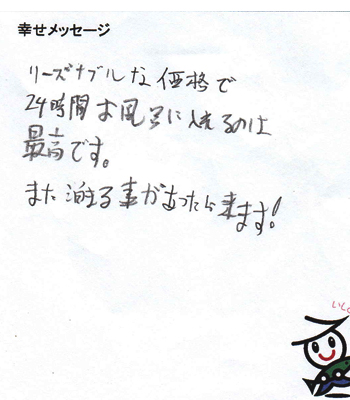 幸せメッセージ
リーズナブルな価格で
24時間お風呂に入れるのは
最高です。
また泊まる事があったら来ます!